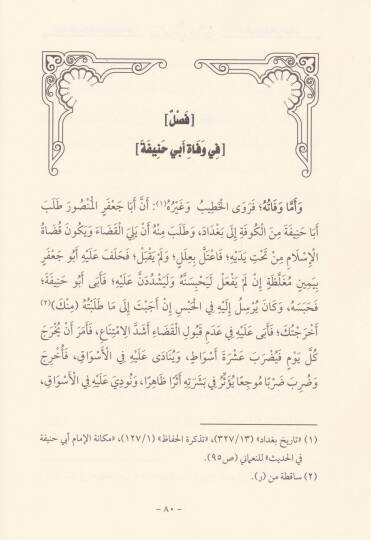 [فَصْلٌ]
[فِي وَفَاةِ أَبِي حَنِيفَةَ]
وَأَمَّا وَفَاتُهُ: فَرَوَى الْخَطِيبُ وَغَيْرُهُ(١): أَنَّ أَبَا جَعْفَرٍ الْمَنْصُورَ طَلَبَ
أَبَا حَنِيفَةَ مِنَ الْكُوفَةِ إِلَى بَغْدَادَ، وَطَلَبَ مِنْهُ أَنْ يَلِيَ الْقَضَاءَ وَيَكُونَ قُضَاةُ
الْإِسْلَامِ مِنْ تَحْتِ يَدَيْهِ؛ فَاعْتَلَّ بِعِلَلٍ؛ وَلَمْ يَقْبَلْ؛ فَحَلَفَ عَلَيْهِ أَبُو جَعْفَرٍ
بِيَمِينٍ مُغَلَّظَةٍ إِنْ لَمْ يَفْعَلْ لَيَحْبِسَنَّهُ وَلَيُشَدِّدَنَّ عَلَيْهِ؛ فَأَبَى أَبُو حَنِيفَةَ؛
فَحَبَسَهُ، وَكَانَ يُرْسِلُ إِلَيْهِ فِي الْحَبْسِ إِنْ أَجَبْتَ إِلَى مَا طَلَبْتُهُ (مِنْكَ)(٢)
أَخْرَجْتُكَ؛ فَأَبَى عَلَيْهِ فِي عَدَمِ قَبُولِ الْقَضَاءِ أَشَدَّ الِامْتِنَاعِ، فَأَمَرَ أَنْ يُخْرَجَ
كُلَّ يَوْمٍ فَيُضْرَبَ عَشْرَةَ أَسْوَاطٍ، وَيُنَادَى عَلَيْهِ فِي الْأَسْوَاقِ، فَأُخْرِجَ
وَضُرِبَ ضَرْبًا مُوجِعًا يُؤَثِّرُ فِي بَشَرَتِهِ أَثَرًا ظَاهِرًا، وَنُودِيَ عَلَيْهِ فِي الْأَسْوَاقِ،
(١) «تاريخ بغداد» (٣٢٧/١٣)، «تذكرة الحفاظ» (١٢٧/١)، «مكانة الإمام أبي حنيفة
في الحديث» للنعماني (ص٩٥).
(٢) ساقطة من (ر).
- ٨٠ -